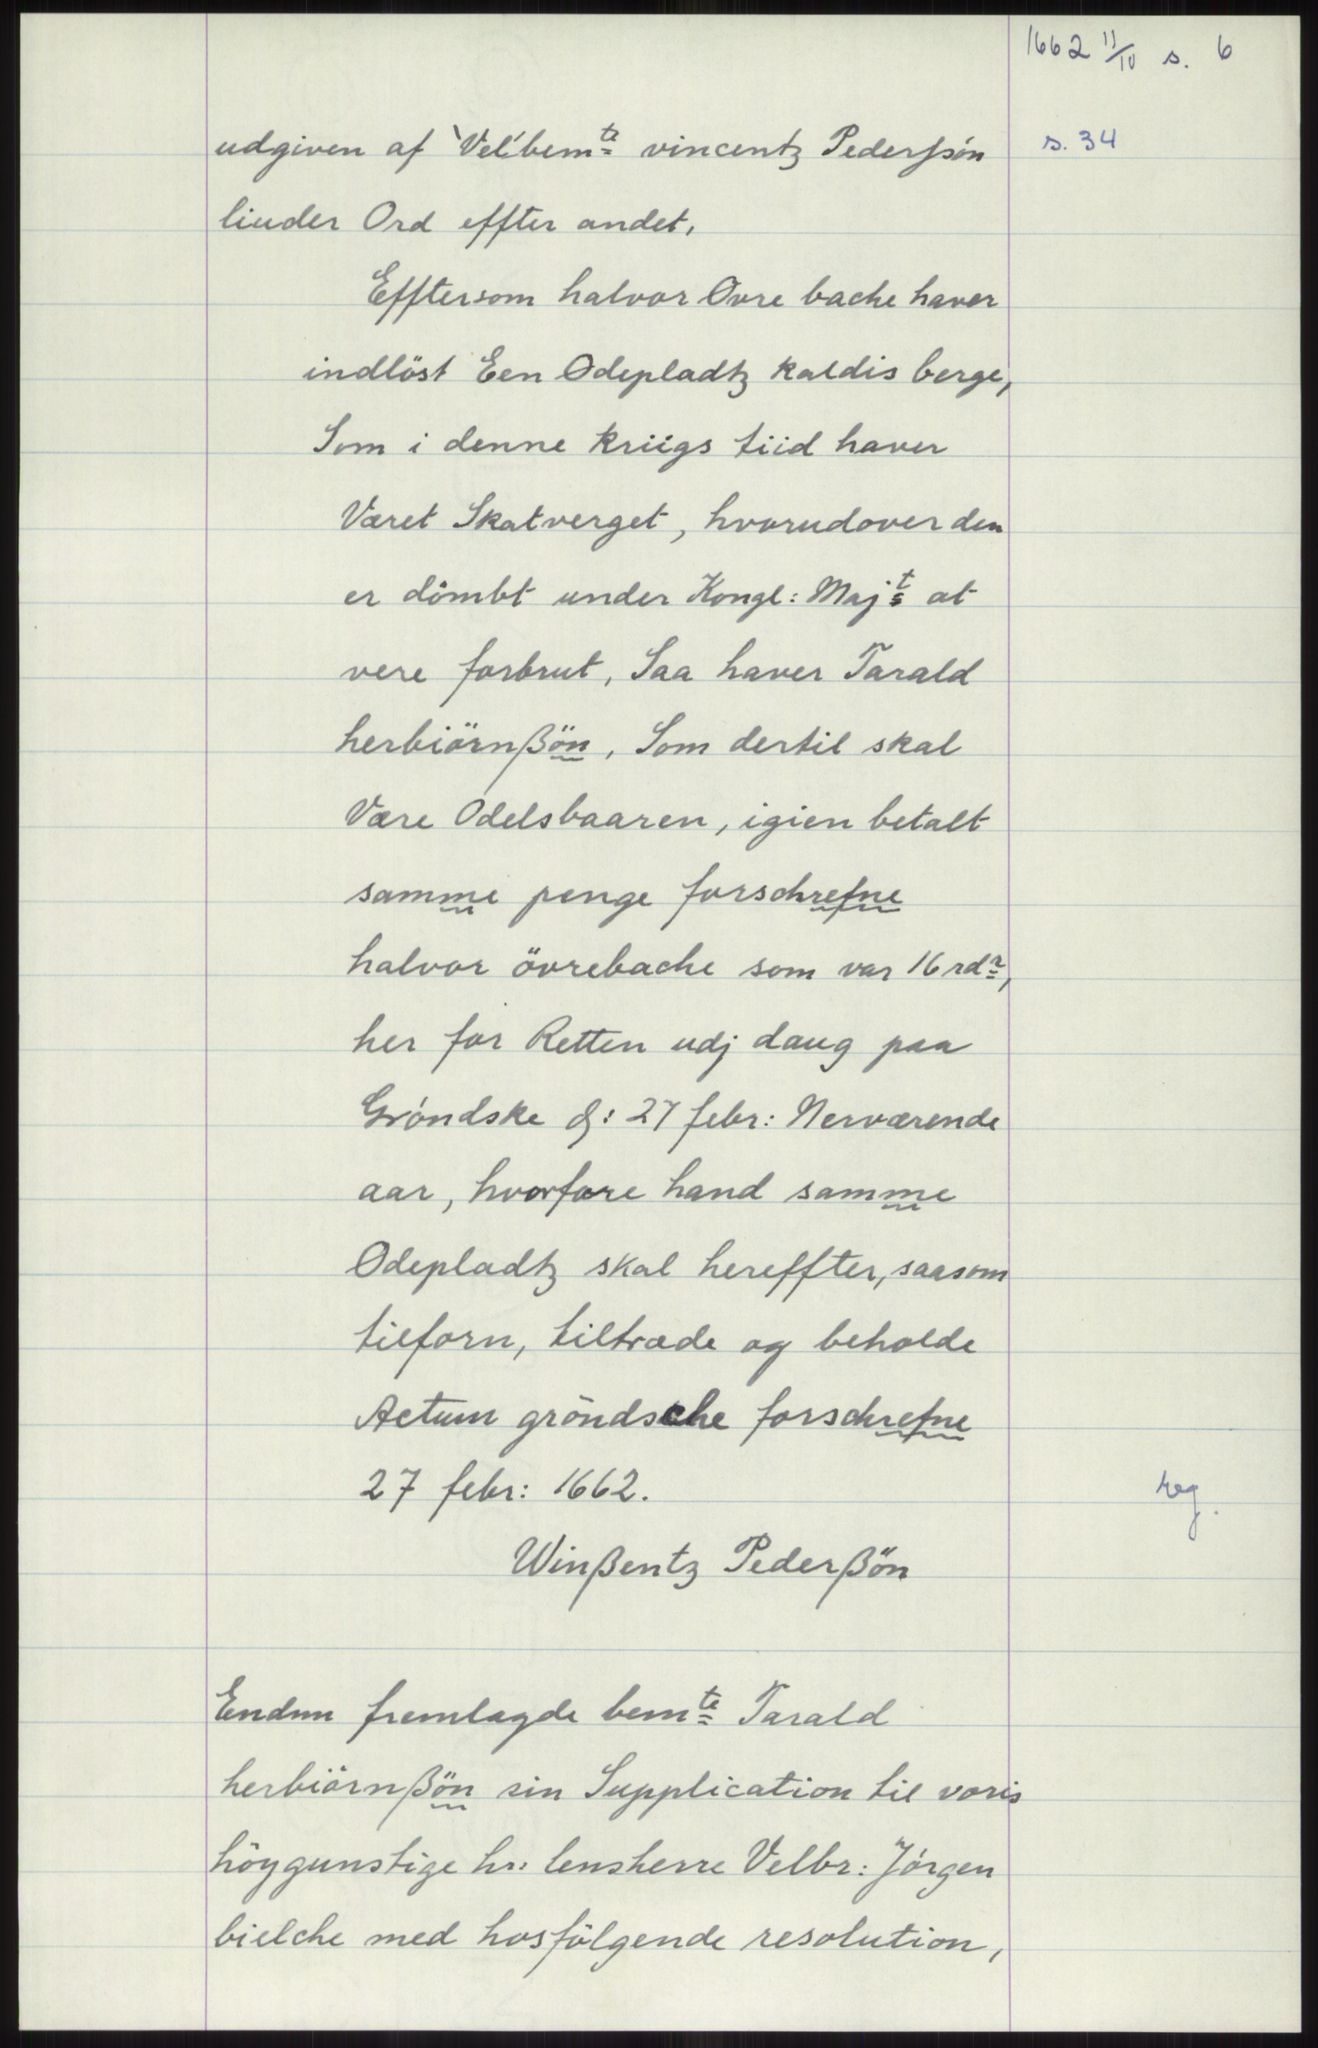 1662 11/10 s. 6
udgiven af 'Vel'bem^te vincentz Pederßón s. 34
liuder Ord effter andet,
Efftersom halvor Ovre bache haver
indlöst Een Odepladtz kaldis berge,
Som i denne kriigs tiid haver
Været Skatverget, hvorudover den
er dömbt under Kongl: Maj^ts at
vere forbrut, Saa haver Tarald
herbiörnßön, Som dertil skal
Være Odelsbaaren, igien betalt
samme penge forschrefne
halvor övrebache som var 16 rd^r,
her for Retten udj daug paa
Gróndske d: 27 febr: Nerværende
aar, hvorfore hand samme
Odepladtz skal hereffter, saasom
tilforn, tiltræde og beholde
Actum gröndsche forschrefne
27 febr: 1662.
reg.
Winßentz Pederßön
Endnu fremlagde bem^te Tarald
herbiörnßön sin Supplication til voris
höygunstige hr: lensherre Velbr: Jórgen
bielche med hosfölgende resolution,